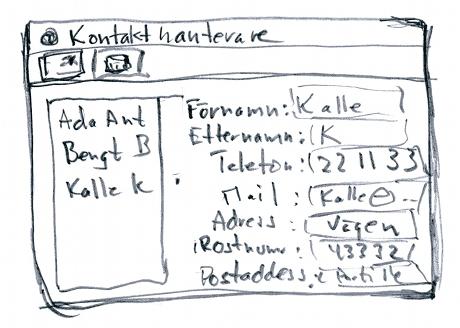 Kontakthanterare
Ada Ant
Bengt B
Kalle K
Förnamn: Kalle
Efternamn: K
Telefon: 22 11 33
Mail: Kalle@...
Adress: Vägen
Postnumr: 43332
Postaddess: